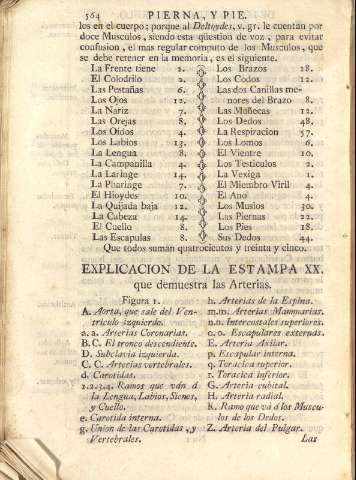 564 PIERNA, Y PIE.
los en el cuerpo; porque al Deltoydes, v. gr. le cuentan por
doce Musculos, siendo esta question de voz, para evitar
confusion, el mas regular computo de los Musculos, que
se debe retener en la memoria, es el siguiente.
La Frente tiene 2.
El Colodrilo 2.
Las Pestañas 6.
Los Ojos 12.
La Nariz 7.
Las Orejas 8.
Los Oidos 4.
Los Labios 13.
La Lengua 8.
La Campanilla 4.
La Laringe 14.
La Pharinge 7.
El Hioydes 10.
La Quijada baja 12.
La Cabeza 14.
El Cuello 8.
Las Escapulas 8.
Los Brazos 18.
Los Codos 12.
Las dos Canillas me-
nores del Brazo 8.
Las Muñecas 12.
Los Dedos 48.
La Respiracion 57.
Los Lomos 6.
El Vientre 10.
Los Testiculos 2.
La Vexiga 1.
El Miembro Viril 4.
El Ano 4.
Los Muslos 30.
Las Piernas 22.
Los Pies 18.
Sus Dedos 44.
Que todos suman quatrocientos y treinta y cinco.
EXPLICACION DE LA ESTAMPA XX.
que demuestra las Arterias.
Figura 1.
A. Aorta, que sale del Ven-
triculo izquierdo.
a. a. Arterias Coronarias.
B. C. El tronco descendiente.
D. Subclavia izquierda.
C. C. Arterias vertebrales.
d. Carotidas.
1.2.3.4. Ramos que ván á
la Lengua, Labios, Sienes,
y Cuello.
e. Carotida interna.
g. Union de las Carotidas, y
Vertebrales.
h. Arterias de la Espina.
m.m. Arterias Mammarias.
n.n. Intercostales superiores.
o. o. Escapulares externas.
E. Arteria Axilar.
p. Escapular interna.
q. Toracica superior.
r. Toracica inferior.
G. Arteria cubital.
H. Arteria radial.
K. Ramo que vá á los Muscu-
los de los Dedos.
Z. Arteria del Pulgar.
Las